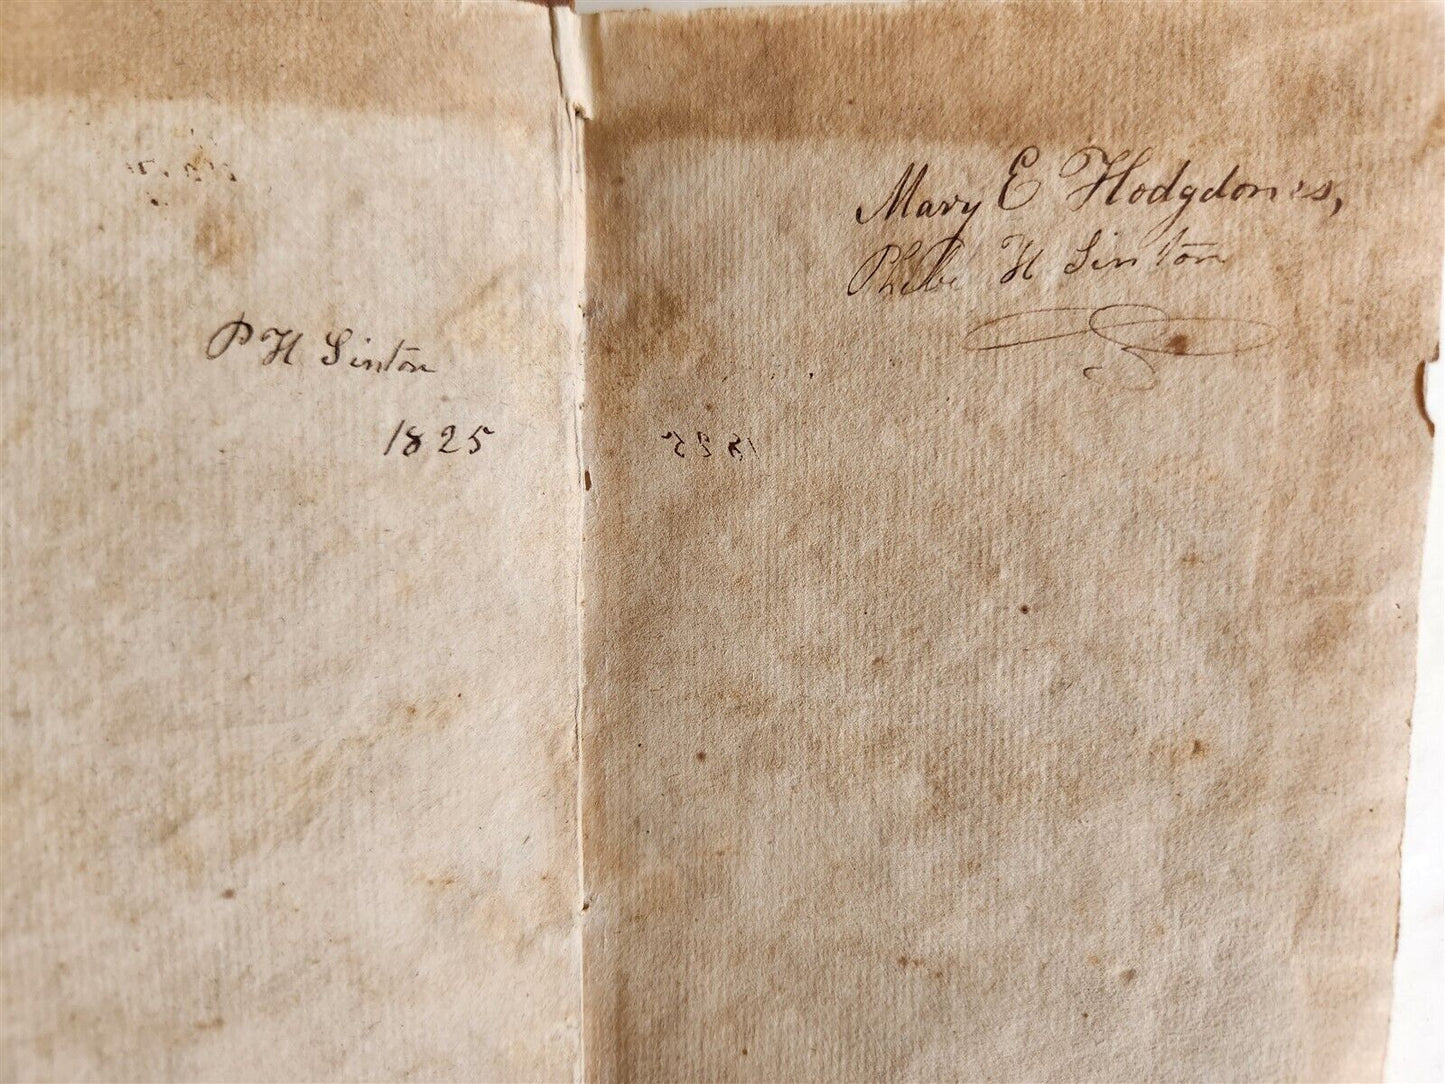 P H Sinton
1825
Mary E Hodgdon's,
Phebe H Sinton